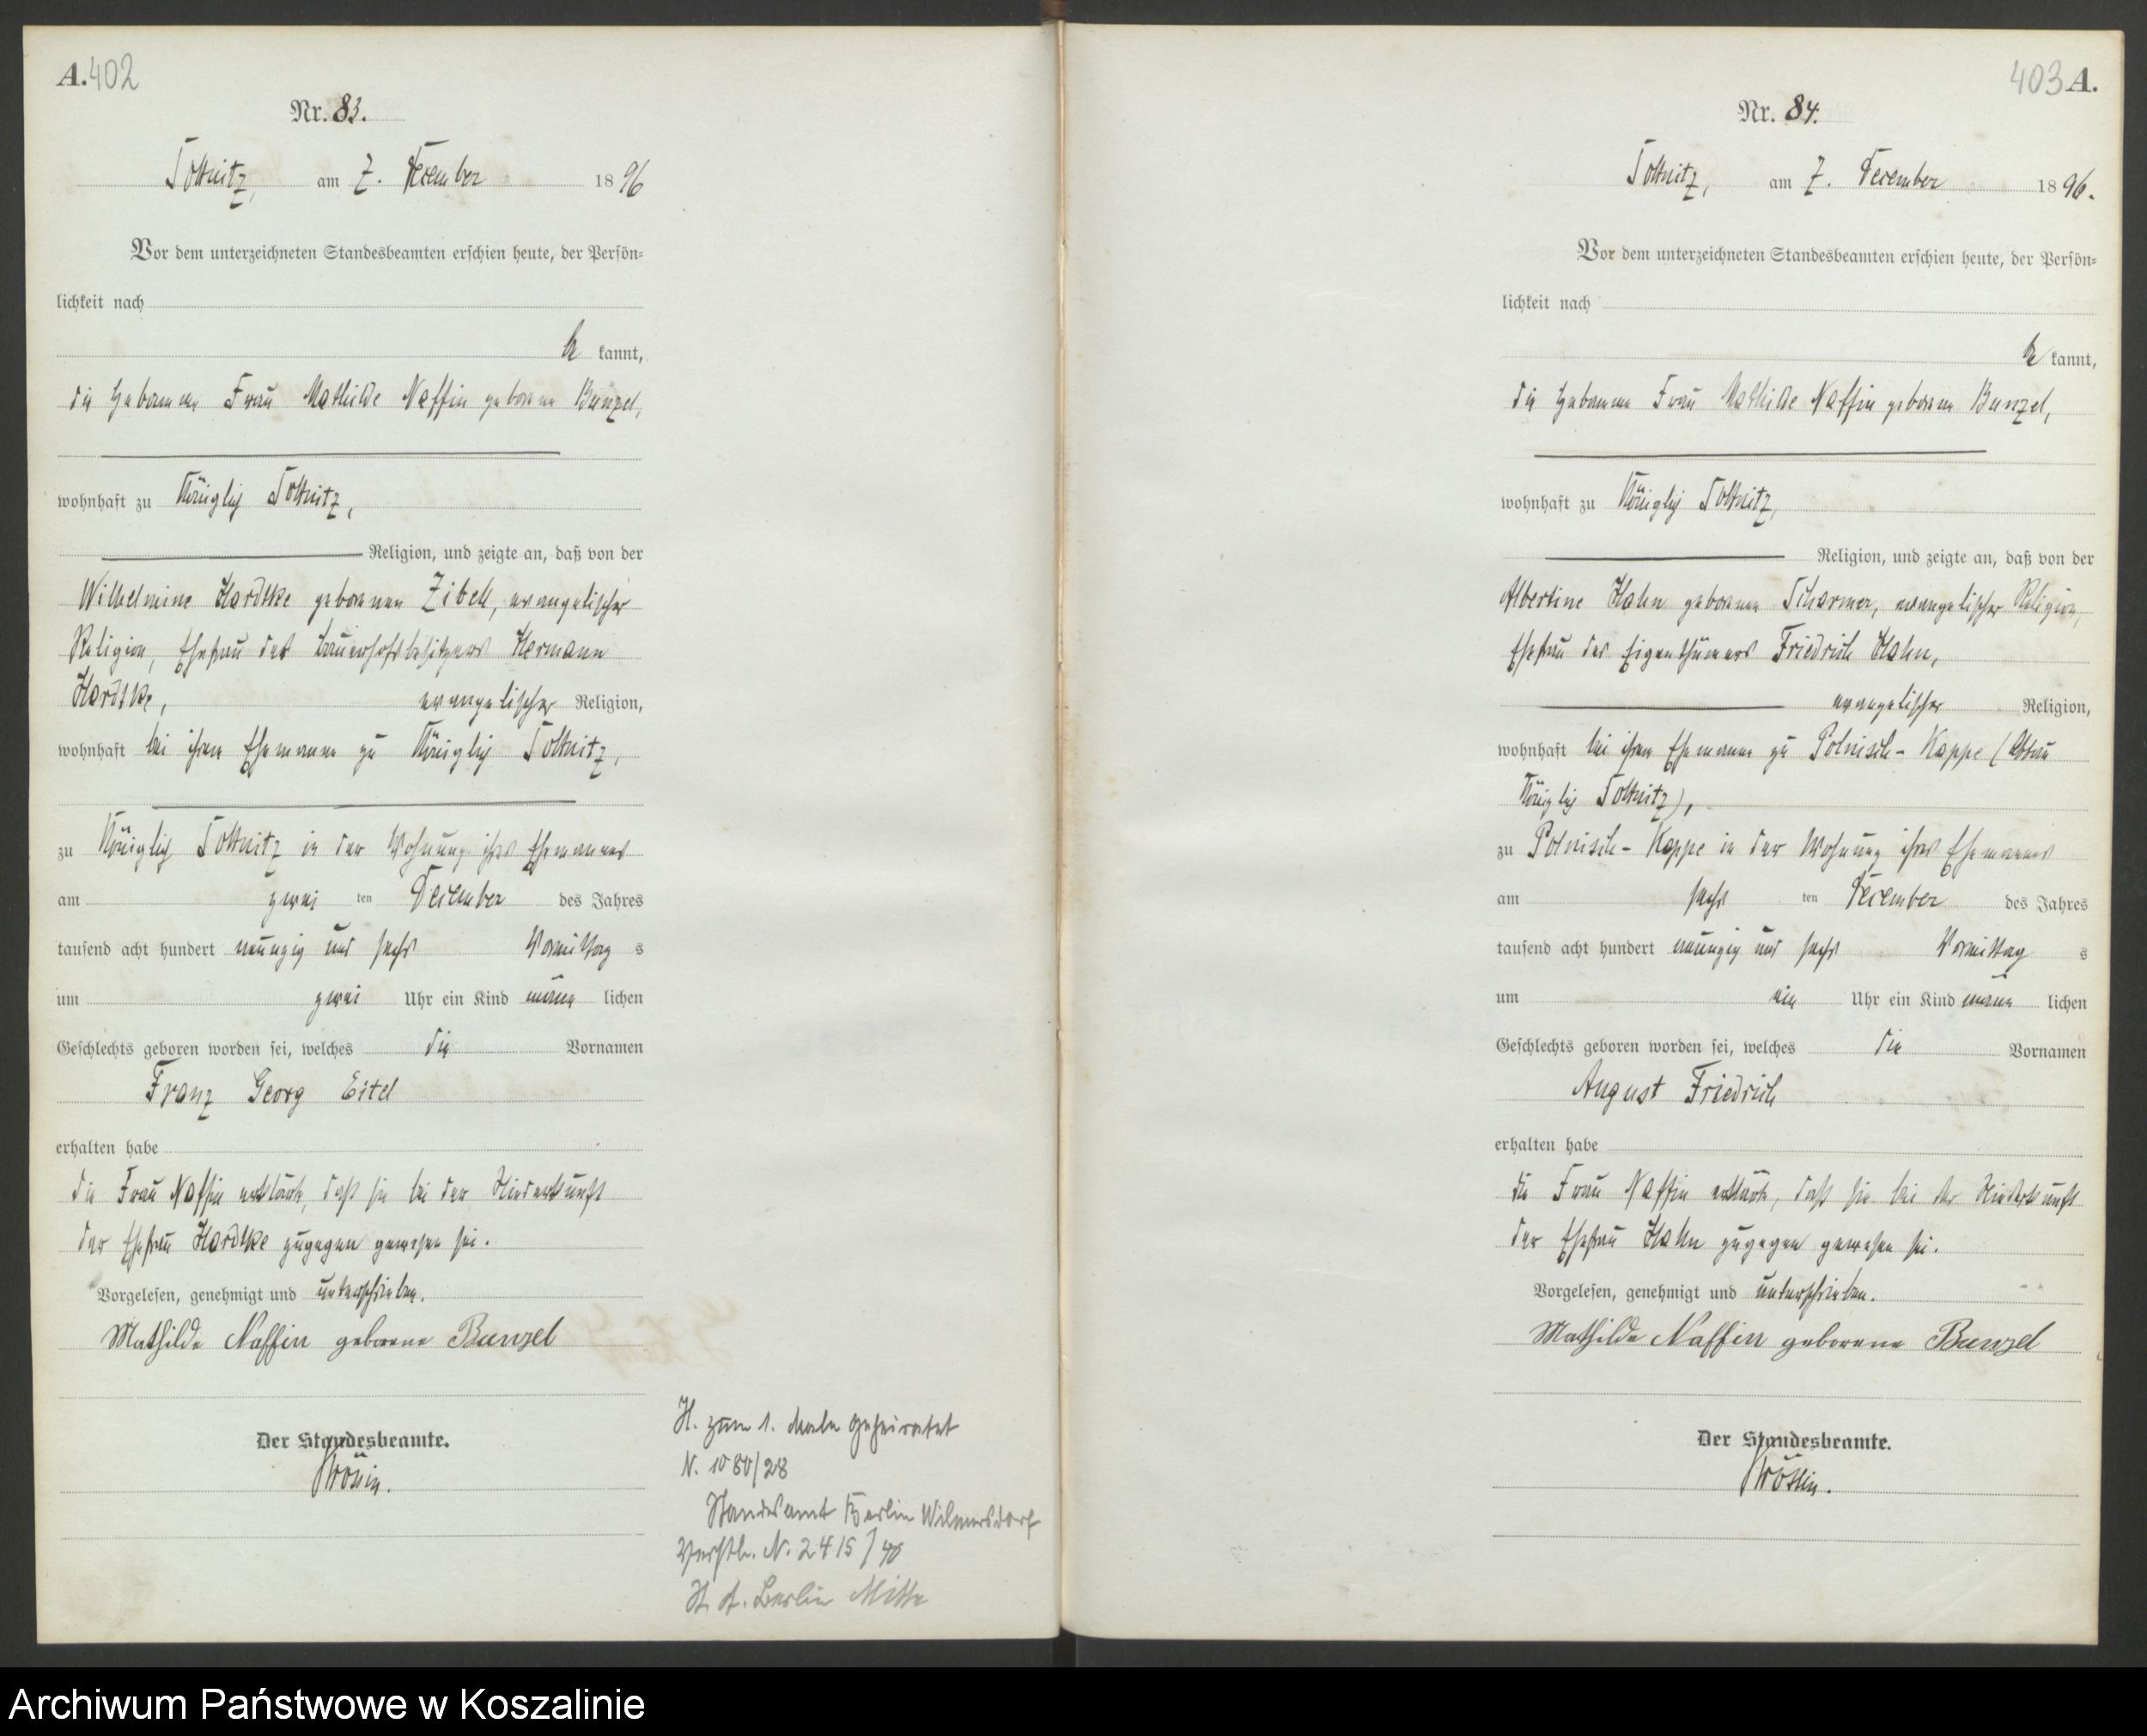 A. 402
Nr. 83.
Soltnitz, am 7. December 1896
Vor dem unterzeichneten Standesbeamten erschien heute, der Persön-
lichkeit nach
be kannt,
die Hebamme Frau Mathilde Naffin geborene Bunzel,
wohnhaft zu Königlich Soltnitz,
Religion, und zeigte an, daß von der
Wilhelmine Hardtke geborenen Zibell, evangelischer
Religion, Ehefrau des Bauerhofsbesitzers Hermann
Hardtke, evangelischer Religion,
wohnhaft bei ihrem Ehemanne zu Königlich Soltnitz,
zu Königlich Soltnitz in der Wohnung ihres Ehemannes
am zwei ten December des Jahres
tausend acht hundert neunzig und sechs Vormittag s
um zwei Uhr ein Kind männ lichen
Geschlechts geboren worden sei, welches die Vornamen
Franz Georg Eitel
erhalten habe
die Frau Naffin erklärte, daß sie bei der Niederkunft
der Ehefrau Hardtke zugegen gewesen sei.
Vorgelesen, genehmigt und unterschrieben.
Mathilde Naffin geborene Bunzel
Der Standesbeamte.
H. zum 1. Male geheiratet
N. 1080/28
Standesamt Berlin Wilmersdorf
Verstb. N. 2415/40
St. A. Berlin Mitte
403 A.
Nr. 84.
Soltnitz, am 7. December 1896.
Vor dem unterzeichneten Standesbeamten erschien heute, der Persön-
lichkeit nach
be kannt,
die Hebamme Frau Mathilde Naffin geborene Bunzel,
wohnhaft zu Königlich Soltnitz,
Religion, und zeigte an, daß von der
Albertine Hahn geborene Scharmer, evangelischer Religion,
Ehefrau des Eigenthümers Friedrich Hahn,
evangelischer Religion,
wohnhaft bei ihrem Ehemanne zu Polnisch-Kappe (Abbau
Königlich Soltnitz),
zu Polnisch-Kappe in der Wohnung ihres Ehemannes
am sechs ten December des Jahres
tausend acht hundert neunzig und sechs Vormittag s
um ein Uhr ein Kind männ lichen
Geschlechts geboren worden sei, welches die Vornamen
August Friedrich
erhalten habe
die Frau Naffin erklärte, daß sie bei der Niederkunft
der Ehefrau Hahn zugegen gewesen sei.
Vorgelesen, genehmigt und unterschrieben.
Mathilde Naffin geborene Bunzel
Der Standesbeamte.
Archiwum Państwowe w Koszalinie